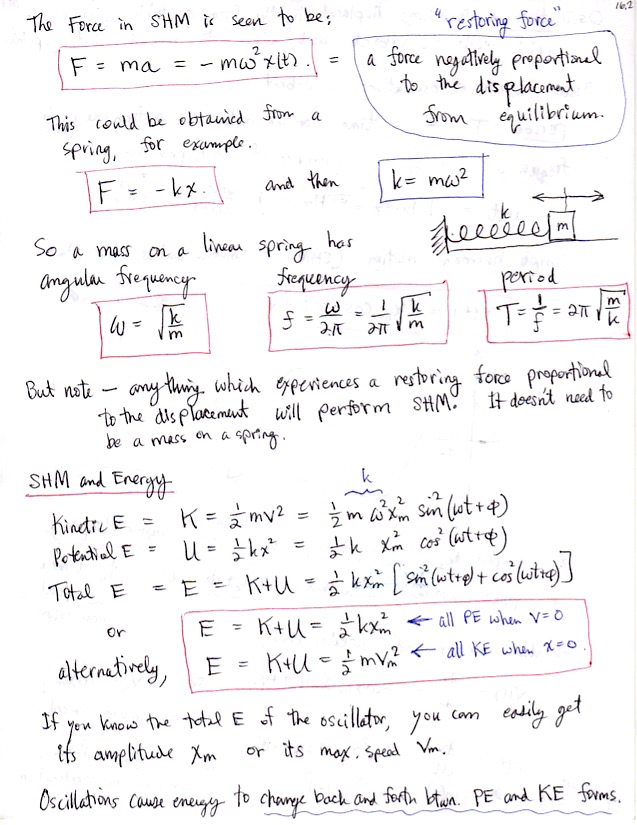 16.2
The Force in SHM is seen to be:
"restoring force"
F = ma = -mω²x(t). = a force negatively proportional
to the displacement
from equilibrium.
This could be obtained from a
spring, for example.
F = -kx. and then k = mω²
k
m
So a mass on a linear spring has
angular frequency frequency period
ω = √(k/m) f = ω/2π = 1/2π √(k/m) T = 1/f = 2π √(m/k)
But note – anything which experiences a restoring force proportional
to the displacement will perform SHM. It doesn't need to
be a mass on a spring.
SHM and Energy
k
Kinetic E = K = ½mv² = ½ m ω²xₘ² sin²(ωt+φ)
Potential E = U = ½kx² = ½ k xₘ² cos²(ωt+φ)
Total E = E = K+U = ½ kxₘ² [sin²(ωt+φ) + cos²(ωt+φ)]
or E = K+U = ½ kxₘ² ← all PE when v=0
alternatively, E = K+U = ½ mvₘ² ← all KE when x=0.
If you know the total E of the oscillator, you can easily get
its amplitude xₘ or its max. speed vₘ.
Oscillations cause energy to change back and forth btwn. PE and KE forms.